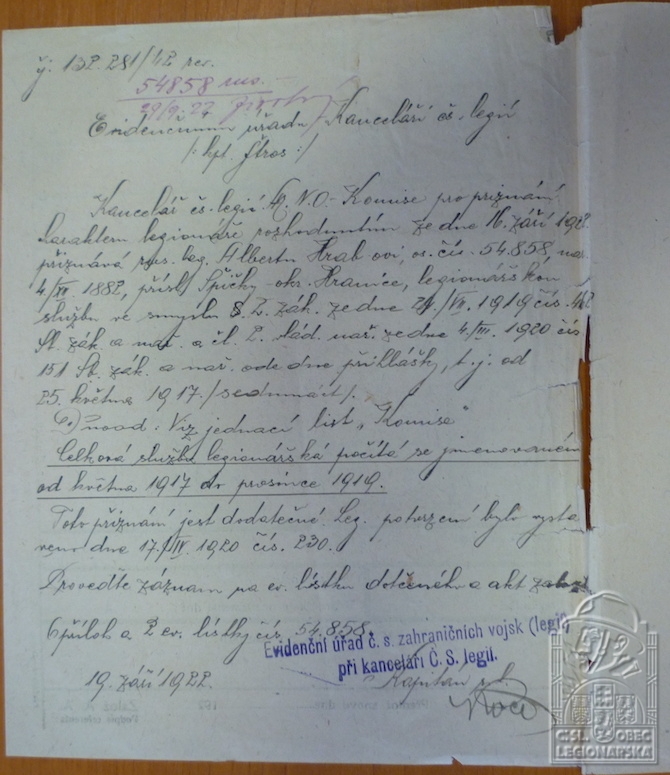 čj. 132.281/42 rev.
54858 rus.
29/9. 22
Evidenčnímu úřadu Kanceláří čs. legií
/: kpt. Štros :/
Kancelář čs. legií M. N. O. - Komise pro přiznání
karakteru legionáře rozhodnutím ze dne 16. září 1922
přiznává rus. leg. Albertu Hrab ovi, os. čís. 54.858, nar.
4/IV 1882, přísl. Špičky okr. Hranice, legionářskou
službu ve smyslu § 2. zák. ze dne 24./VII. 1919 čís. 462
Sb. zák. a nař. a čl. 2. vlád. nař. ze dne 4./III. 1920 čís
151 Sb. zák. a nař. ode dne přihlášky, t. j. od
25. května 1917. /sedmnáct/.
Důvod: Viz jednací list „Komise"
Celková služba legionářská počítá se jmenovaném
od května 1917 do prosince 1919.
Toto přiznání jest dodatečné. Leg. potvrzení bylo vysta
veno dne 17./IV. 1920 čís. 230.
Proveďte záznam na ev. lístku dotčeného a akt
6 příloh a 2 ev. lístky čís. 54.858.
Evidenční úřad č. s. zahraničních vojsk (legií)
při kanceláři Č. S. legií.
19. září 1922.
Kapitán
ČSL. OBEC
LEGIONÁŘSKÁ